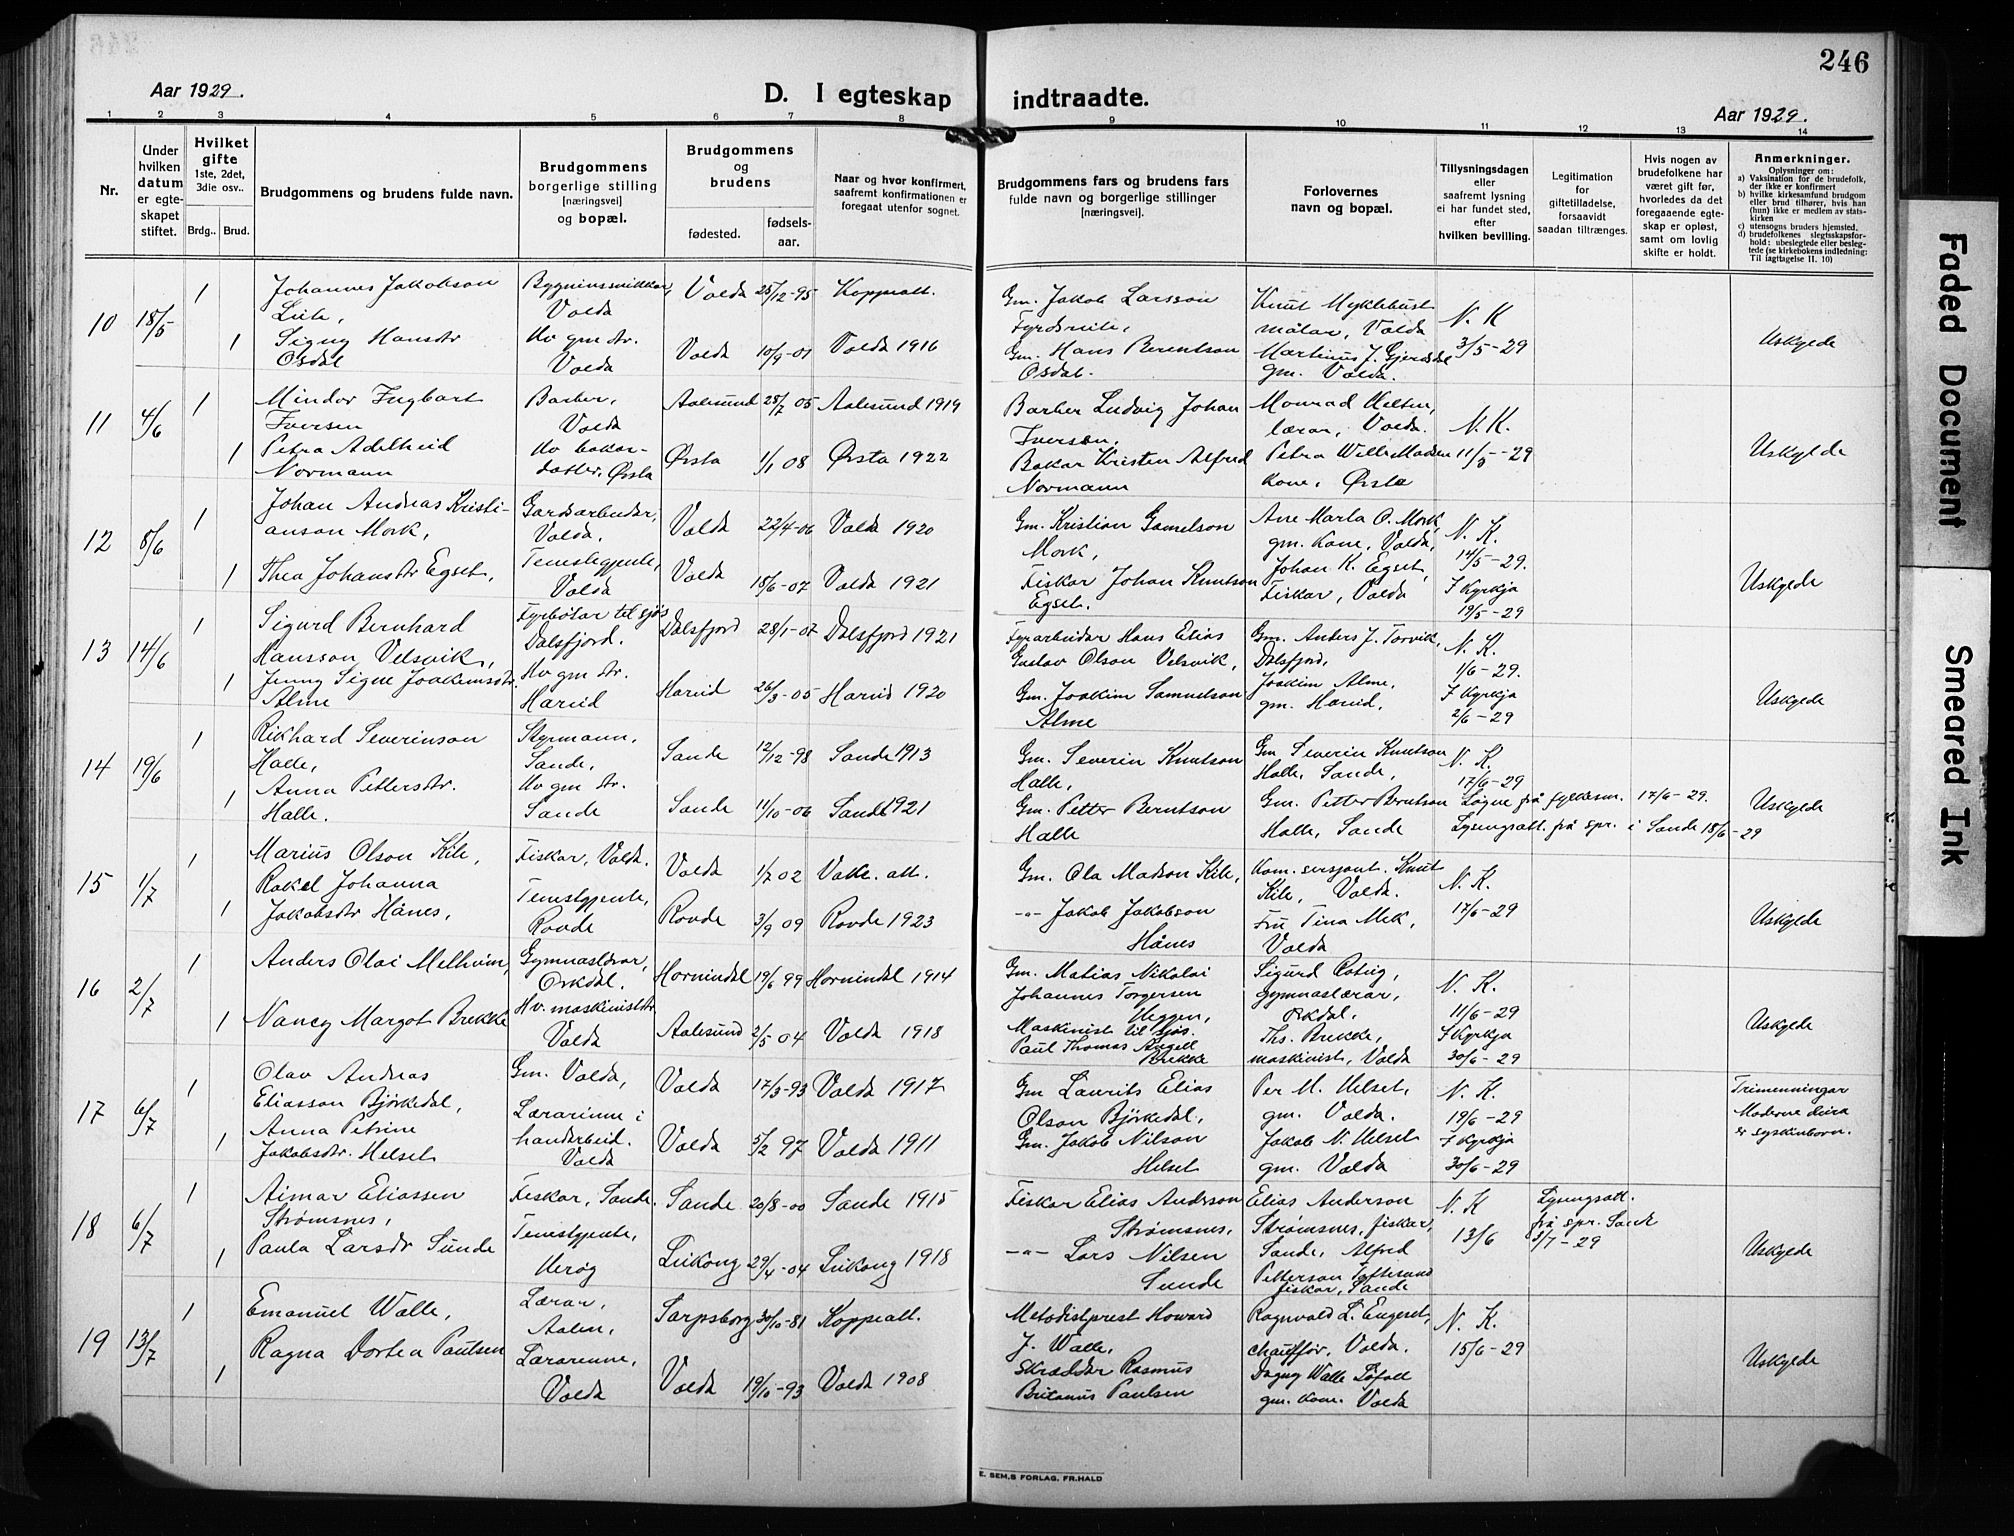 246
Aar 1929.
D. I egteskap indtraadte.
Aar 1929.
1 2 3 4 5 6 7 8 9 10 11 12 13 14
Nr.
Under hvilken datum er egteskapet stiftet.
Hvilket gifte 1ste, 2det, 3die osv..
Brdg.. Brud.
Brudgommens og brudens fulde navn.
Brudgommens borgerlige stilling [næringsvei] og bopæl.
Brudgommens og brudens
fødested.
fødsels-aar.
Naar og hvor konfirmert, saafremt konfirmationen er foregaat utenfor sognet.
Brudgommens fars og brudens fars fulde navn og borgerlige stillinger [næringsvei].
Forlovernes navn og bopæl.
Tillysningsdagen eller saafremt lysning ei har fundet sted, efter hvilken bevilling.
Legitimation for giftetilladelse, forsaavidt saadan tiltrænges.
Hvis nogen av brudefolkene har været gift før, hvorledes da det foregaaende egteskap er opløst, samt om lovlig skifte er holdt.
Anmerkninger.
Oplysninger om:
a) Vaksination for de brudefolk, der ikke er konfirmert
b) hvilke kirkesamfund brudgom eller brud tilhører, hvis han (hun) ikke er medlem av statskirken
c) utensogns bruders hjemsted.
d) brudefolkenes slegtsskapsforhold: ubeslegtede eller beslegtede (se kirkebokens indledning: Til iagttagelse II. 10)
10 18/5 1 Johannes Jakobson Volda 25/12-95 Koppeatt. Gm. Jakob Larsson Knut Myklebust N. K
målar, Volda 3/5-29
1 Signy Hansdr Osdal Uv gm dr. Volda Volda 10/9-01 Volda 1916 Gm. Hans Berentson Osdal. Martinus J. Gjerdsdal gm. Volda. Uskylde
11 4/6 1 Mindor Ingbart Iversen Barber, Volda Aalesund 28/7 05 Aalesund 1919 Barber Ludvig Johan Iversen, Monrad Helten, lærar, Volda. N. K. 11/5-29
1 Petra Adelheid Normann Uv bakardotter, Ørsta Ørsta 1/1 08 Ørsta 1922 Bakar Kristen Alfred Normann Petra Wille Madsen kone, Ørsta Uskylde
12 8/6 1 Johan Andreas Kristianson Mork, Gardsarbeidar, Volda. Volda 22/4-06 Volda 1920 Gm. Kristian Gamelson Mork, Ane Marta O. Mork, gm. Kone, Volda, N. K. 14/5-29.
1 Thea Johansdr Egset, Tenestegjente, Volda Volda 18/6-07 Volda 1921 Fiskar Johan Knutson Egset. Johan K. Egset, Fiskar, Volda I Kyrkja 19/5-29 Uskylde
13 14/6 1 Sigurd Bernhard Hansson Velsvik, Fyrbøtar til sjøs Dalsfjord. Dalsfjord 28/1-07 Dalsfjord 1921 Fyrarbeidar Hans Elias Gustav Olson Velsvik, Gm. Anders J. Torvik, Dalsfjord, N. K. 1/6-29.
1 Jenny Signe Joakimsdr. Alme Uv gm dr. Hareid Hareid 26/3-05 Hareid 1920 Gm. Joakim Samuelson Alme Joakim Alme, gm. Hareid. I Kyrkja 2/6-29 Uskylde
14 19/6 1 Rikhard Severinson Halle, Styrmann, Sande, Sande 12/12-98 Sande 1913 Gm. Severin Knutson Halle, Gm Severin Knutson Halle, Sande, N. K. 17/6-29
1 Anna Pettersdr. Halle. Uv gm dr. Sande Sande 11/10-06 Sande 1921 Gm. Petter Berntson Halle Gm. Petter Berntson Halle, Sande Løyve frå fylkesm. 17/6-29. Lysingsatt. frå spr. i Sande 18/6-29 Uskylde
15 1/7 1 Marius Olson Kile, Fiskar, Volda. Volda 1/7 02 Vakc. att. Gm. Ola Madson Kile, Kom. sersjant. Knut Kile, Volda. N. K. 17/6-29
1 Rakel Johanna Jakobsdr Hånes, Tenestgjente, Rovde Rovde 3/9 09 Rovde 1923 -"- Jakob Jakobson Hånes Fru Tina Mek, Volda Uskylde
16 2/7 1 Anders Olai Melheim, Gymnaslærar, Orkdal. Hornindal 19/6 99 Hornindal 1914 Gm. Matias Nikolai Johannes Torgersen Heggen, Sigurd gymnaslærar, Orkdal. N. K. 11/6-29
1 Nancy Margot Brekke Uv. maskinistdr Volda Aalesund 2/5 04 Volda 1918 Maskinist til sjøs. Paul Thomas Angell Brekke Ths. Brekke, maskinist, Volda I Kyrkja 30/6-29 Uskylde
17 6/7 1 Olav Andreas Eliasson Bjørkedal, Gm. Volda, Volda 17/3-93 Volda 1917 Gm Laurits Elias Olson Bjørkedal, Per M. Helset, gm. Volda. N. K. 19/6-29 Tremenningar Mødrene deira er syskinborn.
1 Anna Petrine Jakobsdr. Helset Lærarinne i handarbeid. Volda Volda 5/2 97 Volda 1911 Gm. Jakob Nilson Helset Jakob N. Helset gm. Volda I Kyrkja 30/6-29
18 6/7 1 Aimar Eliassen Strømsnes, Fiskar, Sande. Sande 20/8-00 Sande 1915 Fiskar Elias Anderson Strømsnes, Elias Anderson Strømsnes, fiskar, Sande, N. K 13/6 Lysingsatt. frå spr. Sande 3/7-29
1 Paula Larsdr Sunde Tenestgjente, Herøy Leikong 29/4-04 Leikong 1918 -"- Lars Nilsen Sunde Alfred Petterson Toftesund fiskar, Sande Uskylde
19 13/7 1 Emanuel Walle, Lærar, Aalen, Sarpsborg 30/10-81 Koppeatt. Metodistprest Howard J. Walle, Ragnvald L. Engeset, chauffør, Volda. N. K. 15/6-29
1 Ragna Dortea Paulsen Lærarinne, Volda Volda 19/10-93 Volda 1908 Skreddar Rasmus Britanus Paulsen Dagny Walle Løfoll gm. kone. Volda Uskylde
E. SEM.S FORLAG. FR.HALD
Faded Document
Smeared Ink